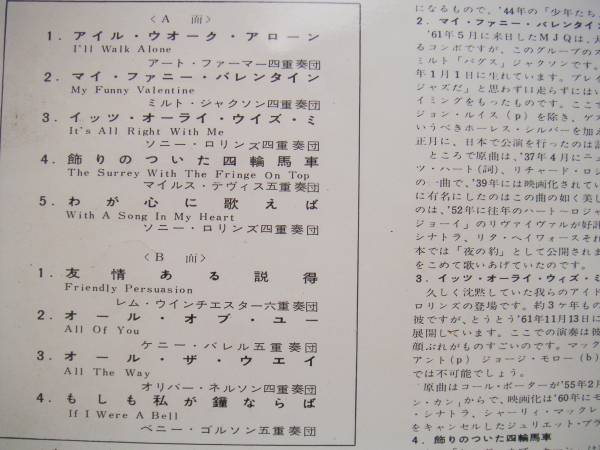 〈A 面〉
1. アイル・ウオーク・アローン
I'll Walk Alone
アート・ファーマー四重奏団
2. マイ・ファニー・バレンタイン
My Funny Valentine
ミルト・ジャクソン四重奏団
3. イッツ・オーライ・ウイズ・ミ
It's All Right With Me
ソニー・ロリンズ四重奏団
4. 飾りのついた四輪馬車
The Surrey With The Fringe On Top
マイルス・デヴィス五重奏団
5. わが心に歌えば
With A Song In My Heart
ソニー・ロリンズ四重奏団
〈B 面〉
1. 友情ある説得
Friendly Persuasion
レム・ウインチエスター六重奏団
2. オール・オブ・ユー
All Of You
ケニー・バレル五重奏団
3. オール・ザ・ウエイ
All The Way
オリバー・ネルソン四重奏団
4. もしも私が鐘ならば
If I Were A Bell
ベニー・ゴルソン五重奏団
になるもので、'44年の「少年たち
2. マイ・ファニー・バレンタイン
'61年5月に来日したMJQは、
るコンボですが、このグループのス
ミルト「バグス」ジャクソンです。
年1月1日に生れています。プレイ
ジャズだ」と思わず口走らずにはい
イミングをもったものです。ここで
ジョン・ルイス(p)を除き、ゲス
いうべきホーレス・シルバーを加え
正月に、日本で公演を行ったのは記
ところで原曲は、'37年4月にニュ
ツ・ハート(詞)、リチャード・ロジ
の一曲で、'39年には映画化されてい
に有名にしたのはこの曲の如く美し
のは、'52年に往年のハート―ロジャ
ジョーイ」のリヴァイヴァルが好評
シナトラ、リタ・ヘイワースそれ
本では「夜の豹」として公開されま
をこめて歌いあげていたのです。
3. イッツ・オーライ・ウィズ・ミ
久しく沈黙していた我らのアイド
ロリンズの登場です。約3ヶ年もの
彼ですが、とうとう'61年11月13日に
展開しています。ここでの演奏は彼
顔ぶれがものすごいのです。マック
アント(p) ジョージ・モロー(b)
では不可能でしょう。
原曲はコール・ポーターが'55年2月
ン・カン」からで、映画化は'60年にモ
・シナトラ、シャーリィ・マックレ
をキャンセルしたジュリエット・プラ
4. 飾りのついた四輪馬車